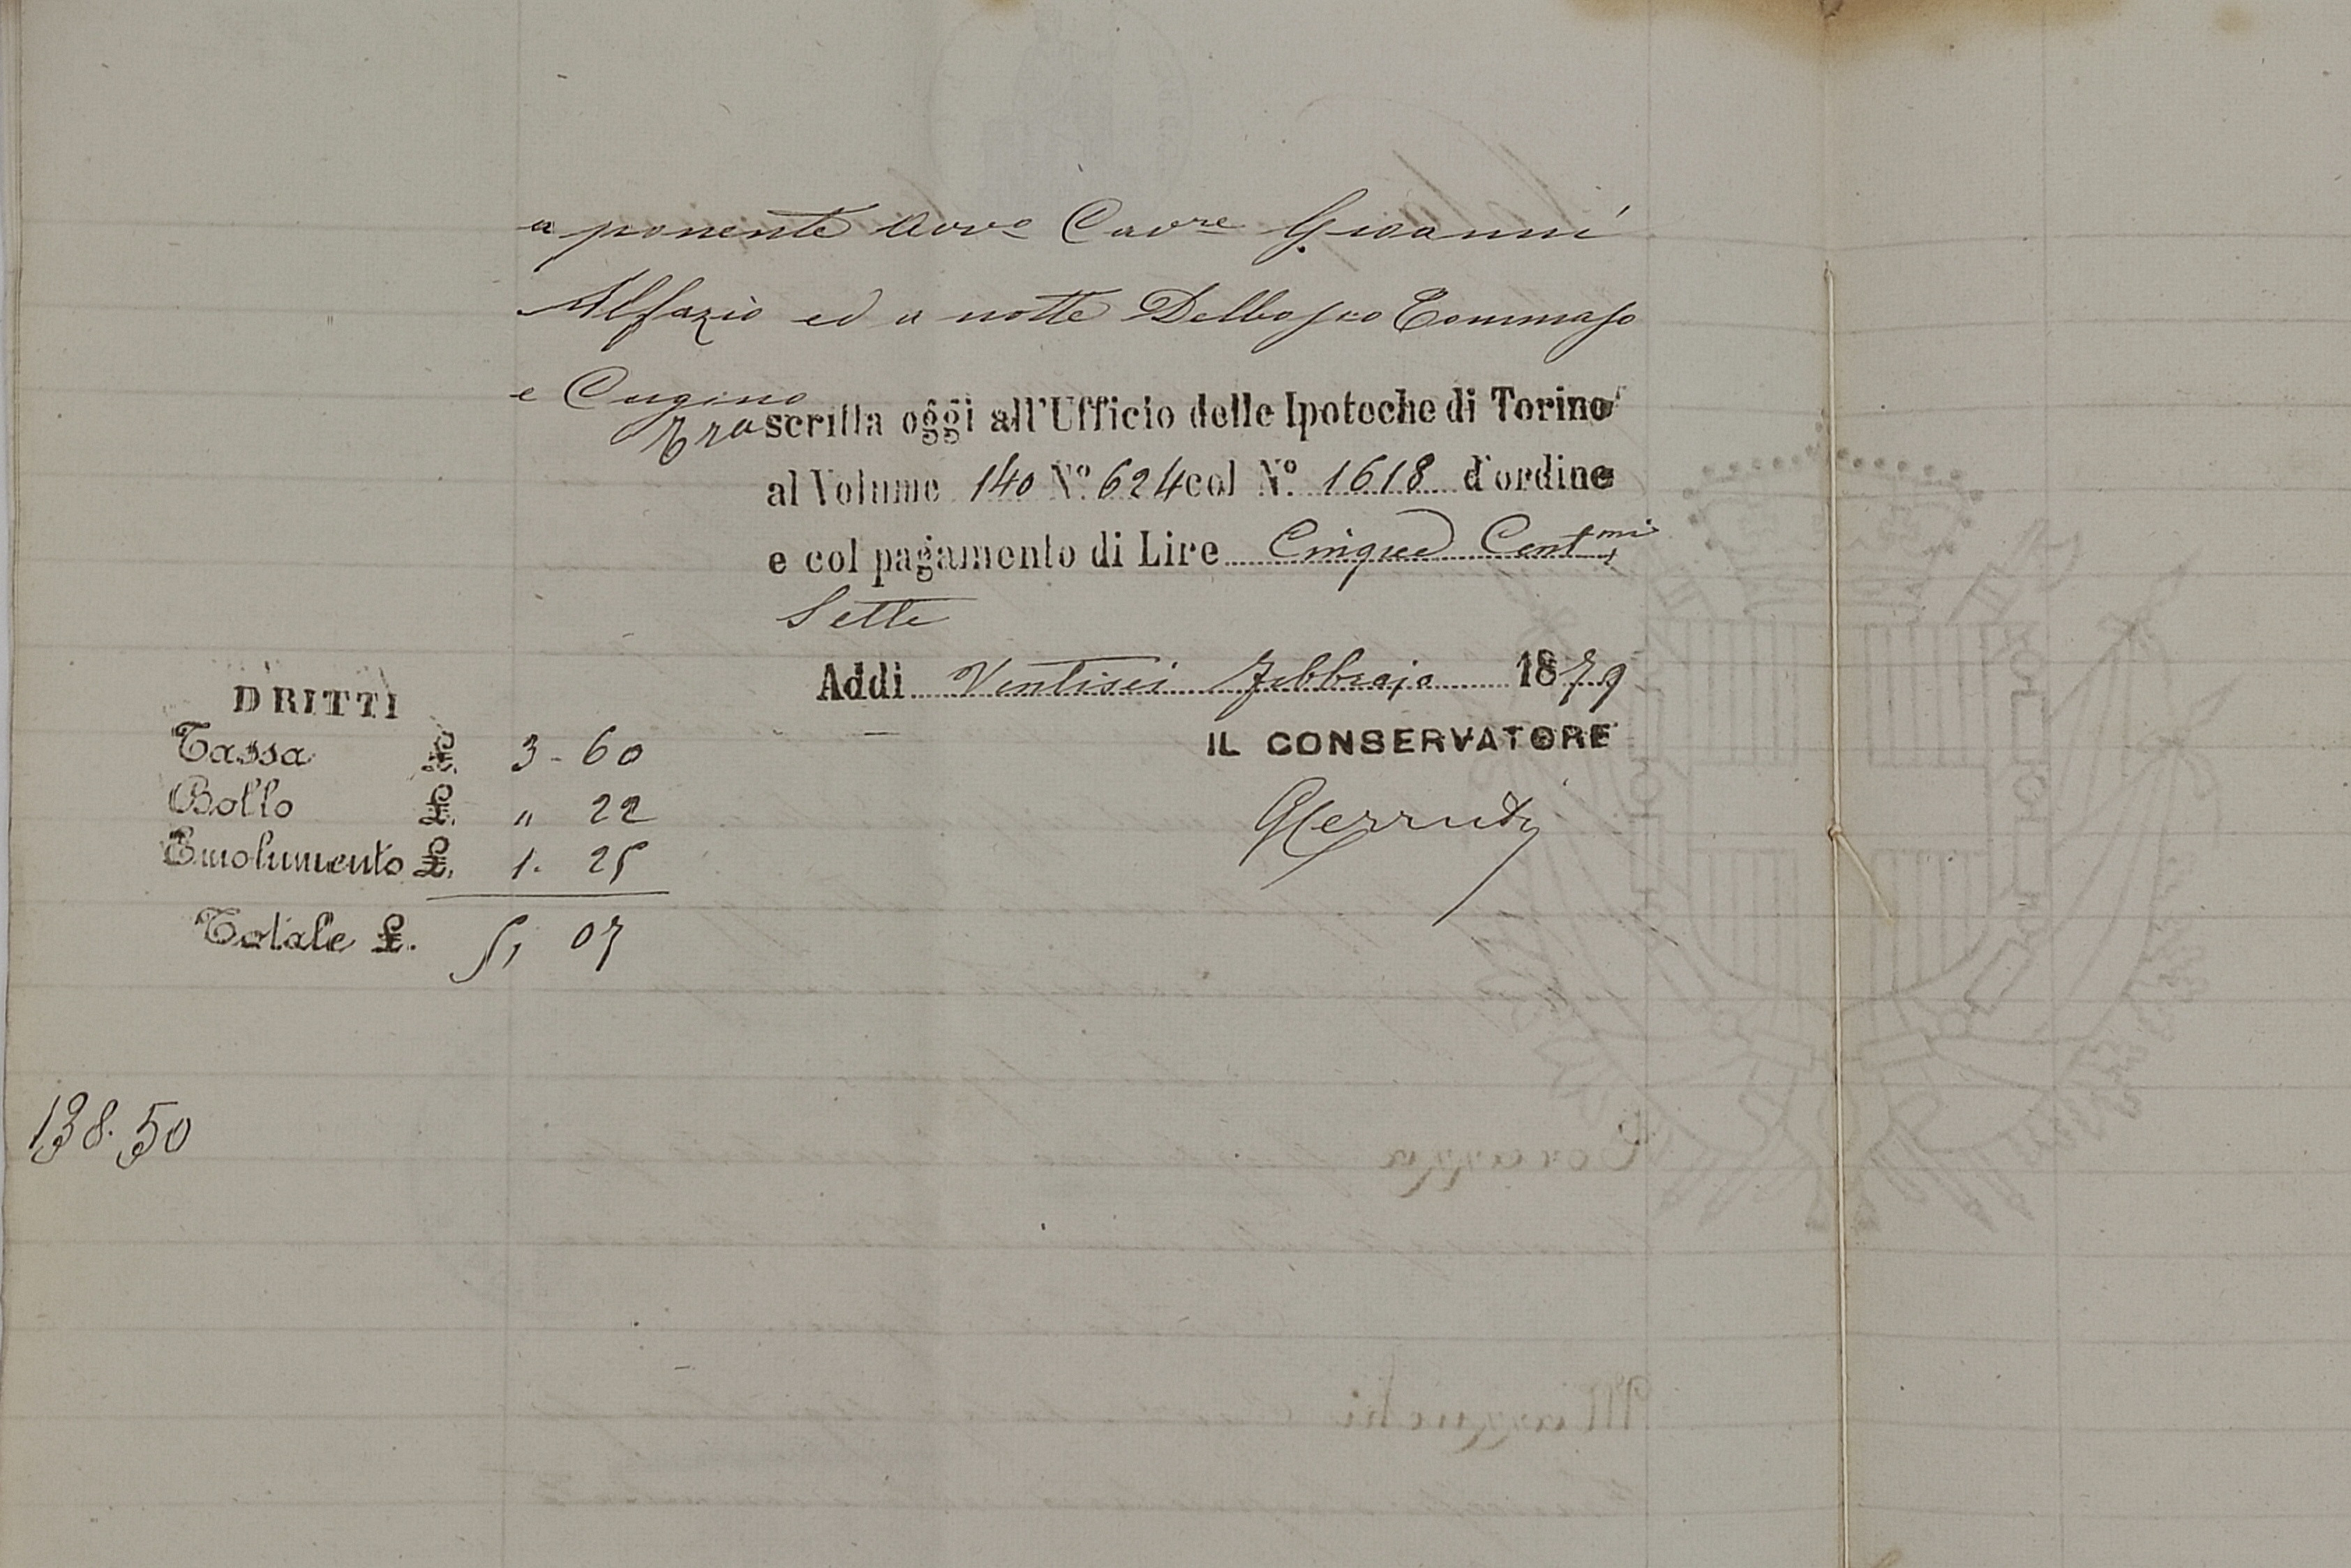 a ponente Avvo Cavre Gioanni
Alfazio ed a notte Delbosco Tommaso
e Cugino
Trascritta oggi all'Ufficio delle Ipoteche di Torino
al Volume 140 No. 624 col No. 1618 d'ordine
e col pagamento di Lire Cinque Centmi
Sette
Addi Ventisei Febbrajo 1879
IL CONSERVATORE
DRITTI
Tassa £. 3-60
Bollo £. " 22
Emolumento £. 1. 25
Totale £. 5, 07
138.50